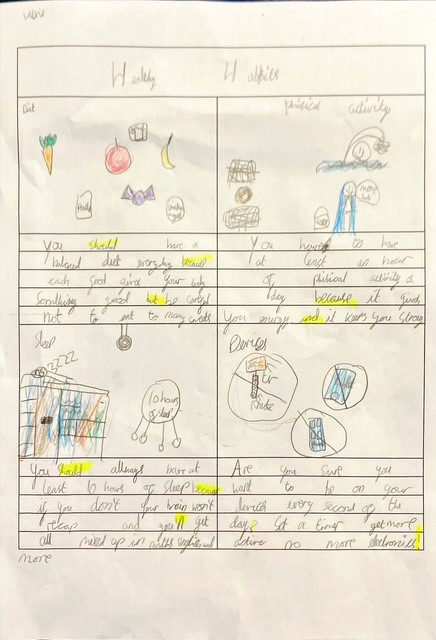 Healthy Habbits
Diet
phisical activity
You should have a
balanced diet everyday because
each food gives your body
somthing good but be careful
not to eat to many sweets
You have to have
at least an hour
of phisical activity a
day because it gives
You energy and it keeps you strong
Sleep
zzzz
10 hours
of sleep
Devices
You should allways have at
least 10 hours of sleep because
if you don't your brain won't
recap and you'll get
all mixed up in maths english and
more
Are you sure you
want to be on your
device every second of the
day? Set a timer get more
active no more electronics!